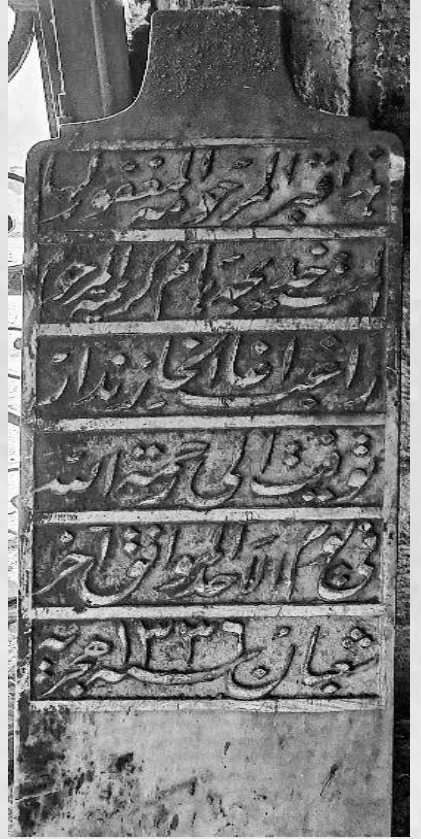 هذا قبر المرحومه المغفور لها
الست خديجة هانم كريمة المرحوم
راغب اغا الخازندار
توفيت الى رحمة الله
في يوم الاحد الموافق اخر
شعبان سنه ١٣٣٦ هجريه